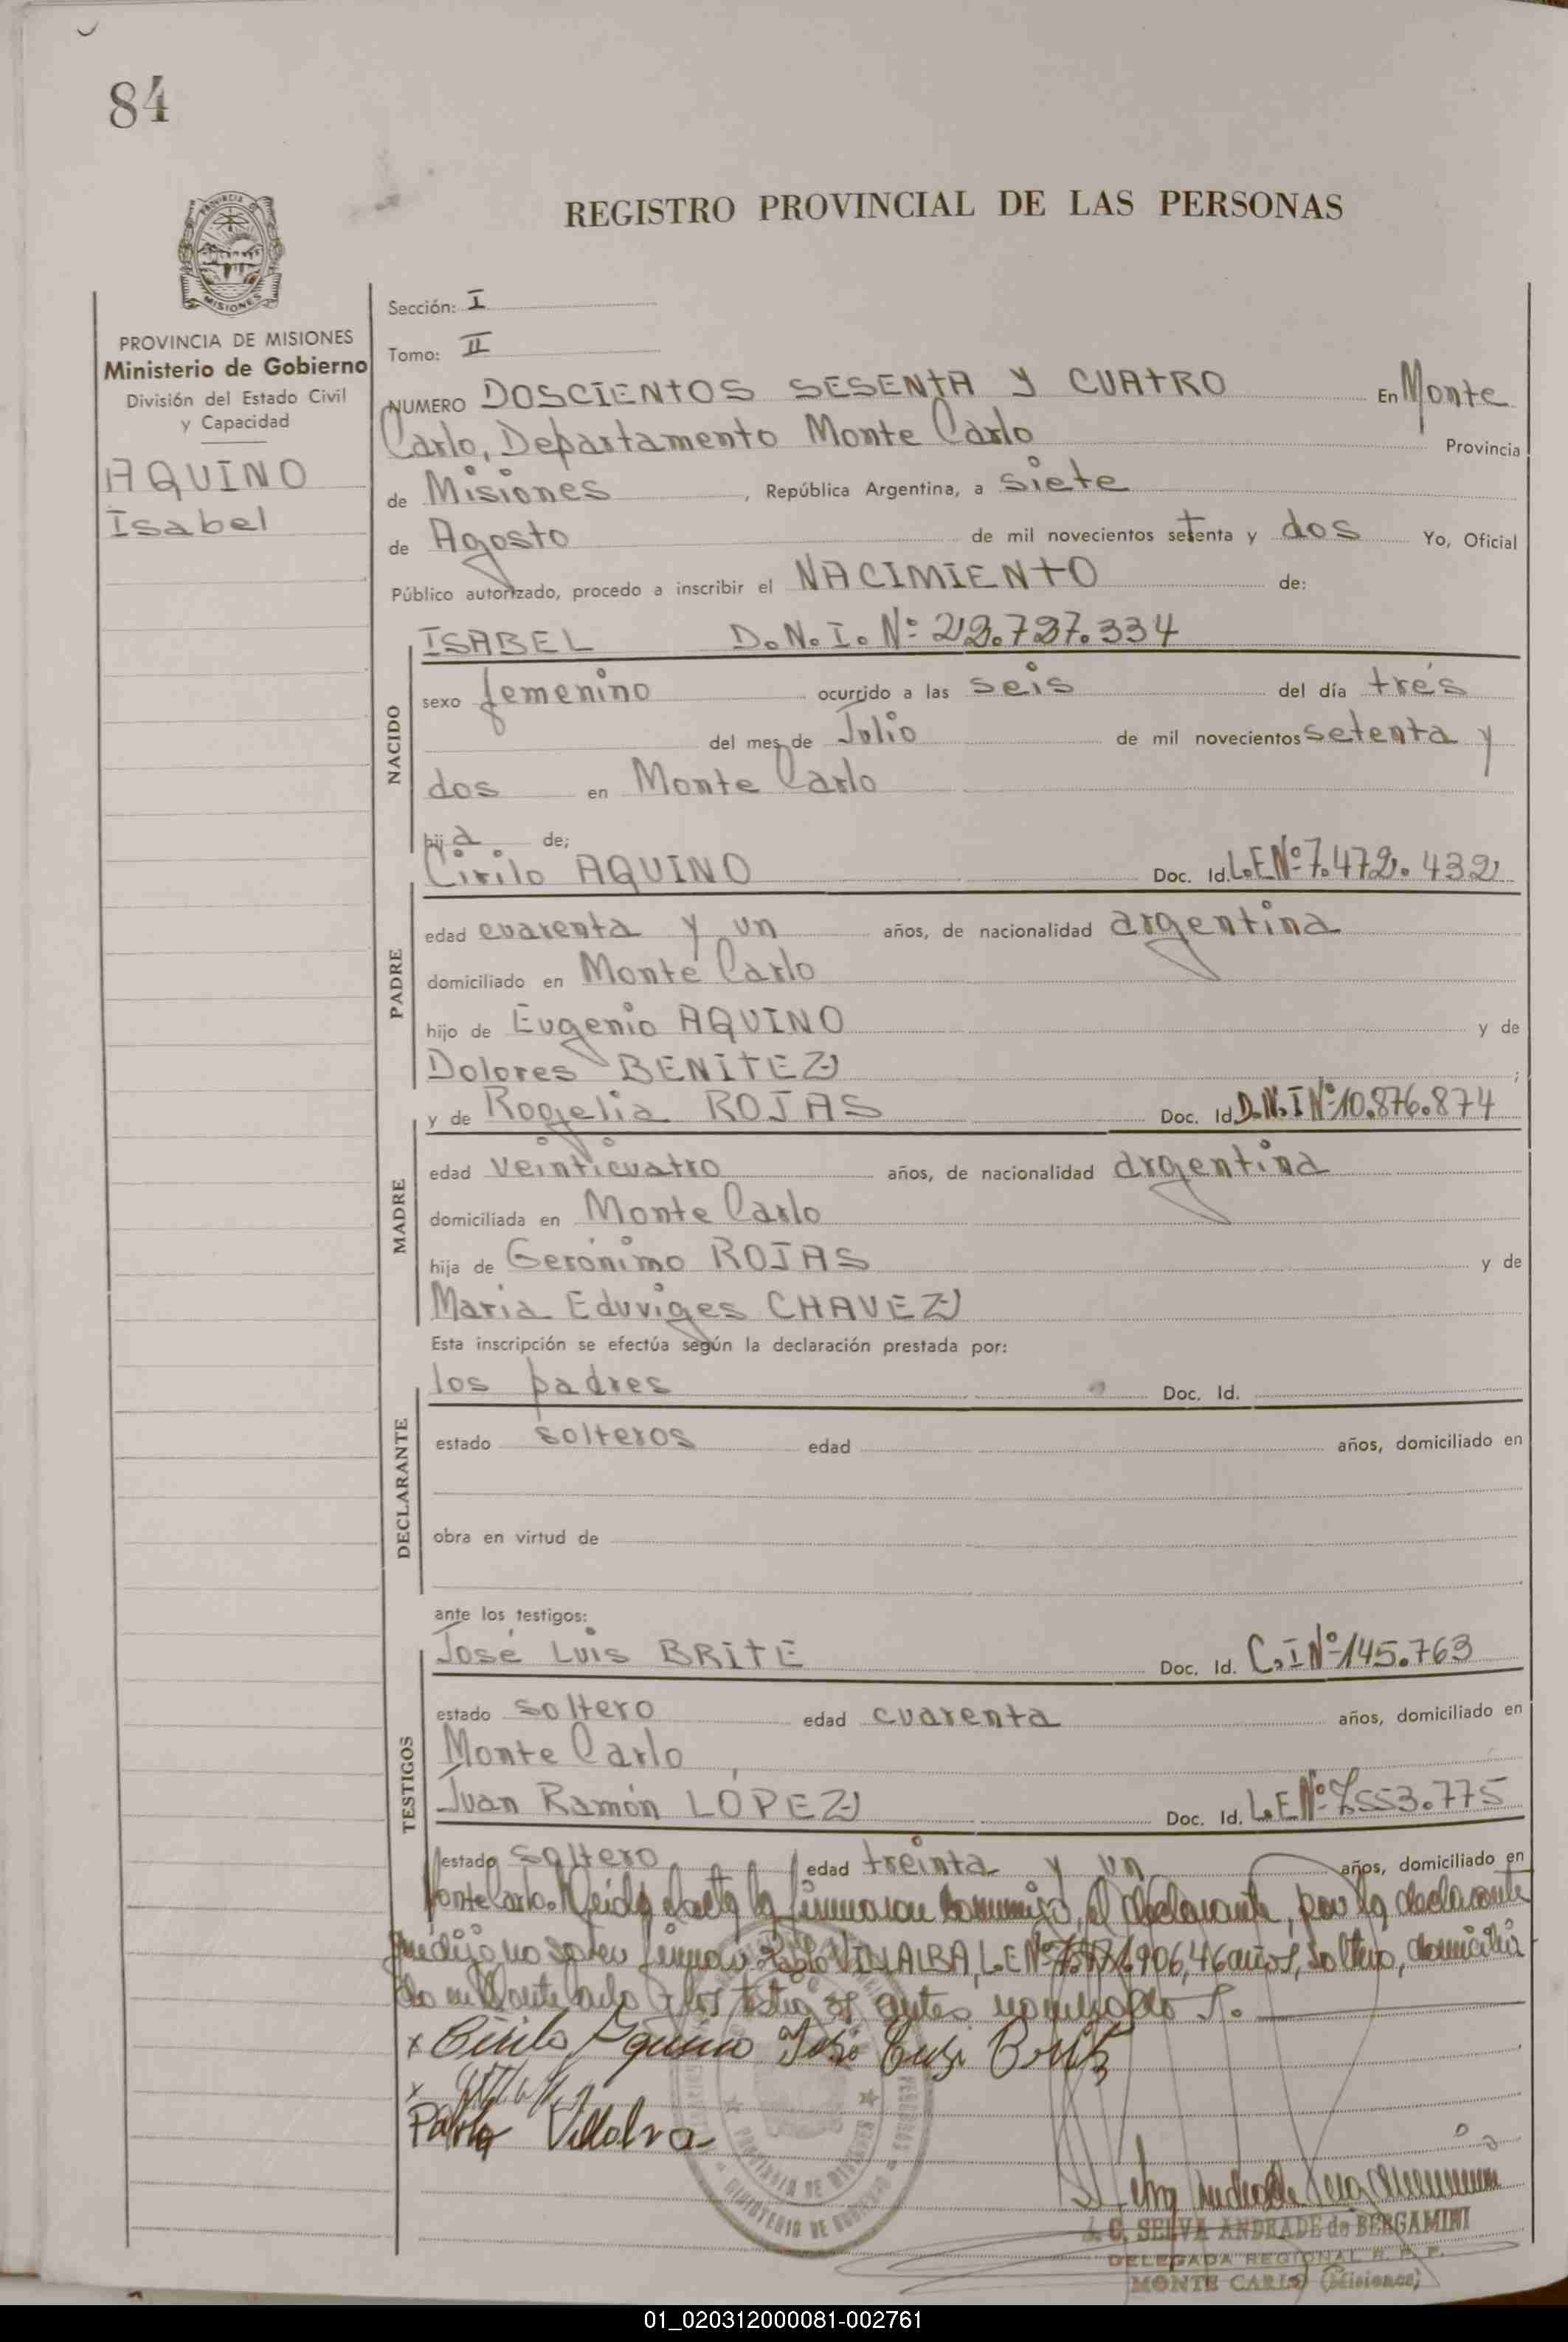 84
REGISTRO PROVINCIAL DE LAS PERSONAS
PROVINCIA DE MISIONES
Ministerio de Gobierno
División del Estado Civil
y Capacidad
AQUINO
Isabel
Sección: I
Tomo: II
NUMERO DOSCIENTOS SESENTA Y CUATRO En Monte
Carlo, Departamento Monte Carlo Provincia
de Misiones, República Argentina, a siete
de Agosto de mil novecientos setenta y dos Yo, Oficial
Público autorizado, procedo a inscribir el NACIMIENTO de:
NACIDO
ISABEL D.N.I. Nº 22.737.334
sexo femenino ocurrido a las seis del día tres
del mes de Julio de mil novecientos setenta y
dos en Monte Carlo
hija de;
PADRE
Cirilo AQUINO Doc. Id. L.E Nº 7.472.432
edad cuarenta y un años, de nacionalidad argentina
domiciliado en Monte Carlo
hijo de Eugenio AQUINO y de
Dolores BENITEZ ;
MADRE
y de Rogelia ROJAS Doc. Id. D.N.I Nº 10.876.874
edad veinticuatro años, de nacionalidad argentina
domiciliada en Monte Carlo
hija de Gerónimo ROJAS y de
Maria Eduviges CHAVEZ
Esta inscripción se efectúa según la declaración prestada por:
DECLARANTE
los padres Doc. Id.
estado solteros edad años, domiciliado en
obra en virtud de
ante los testigos:
TESTIGOS
José Luis BRITE Doc. Id. C.I Nº 145.763
estado soltero edad cuarenta años, domiciliado en
Monte Carlo
Juan Ramón LÓPEZ Doc. Id. L.E Nº 7.553.775
estado soltero edad treinta y un años, domiciliado en
Monte Carlo. Leida el acta la firmaron conmigo, el declarante, por la declarante
que dijo no saber firmar VILLALBA, L.E Nº 46 años, soltero, domicilia
do en Monte Carlo y los testigos antes nombrados.
x Cirilo Aquino José Luis Brite
x
Pablo Villalva
PROVINCIA DE MISIONES
MINISTERIO DE GOBIERNO
C. SELVA ANDRADE de BERGAMINI
DELEGADA REGIONAL R. P. P.
MONTE CARLO (Misiones)
01_020312000081-002761